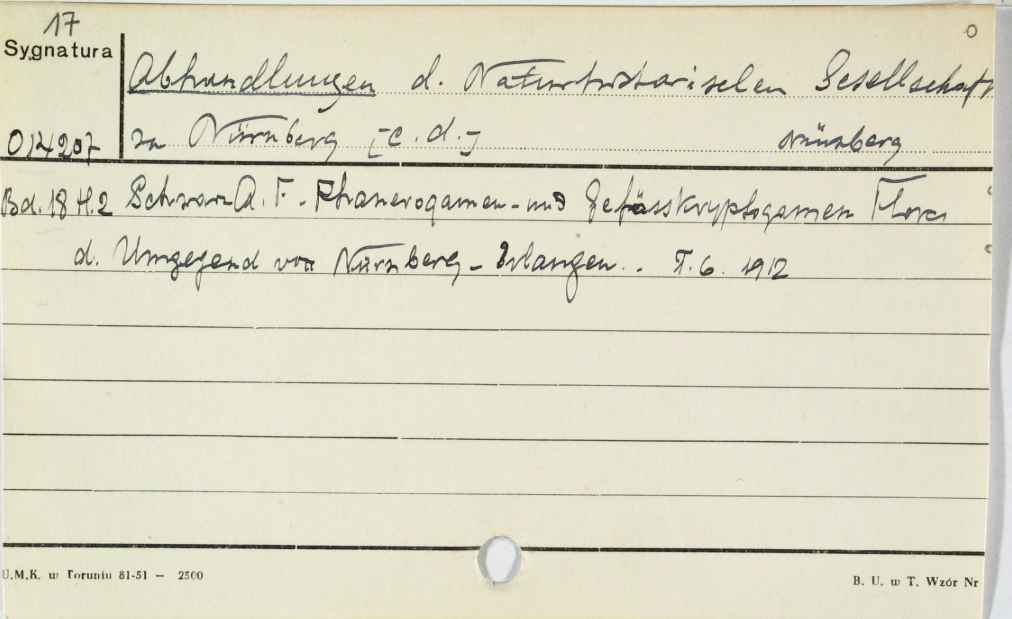 17
Sygnatura
Abhandlungen d. Naturhistorischen Gesellschaft
014207 zu Nürnberg [c.d.] Nürnberg
Bd. 18 H.2 Schwarz A. F. - Phanerogamen- und Gefässkryptogamen Flora
d. Umgegend von Nürnberg - Erlangen.. T. 6. 1912
U.M.K. w Toruniu 81-51 — 2500
B. U. w T. Wzór Nr